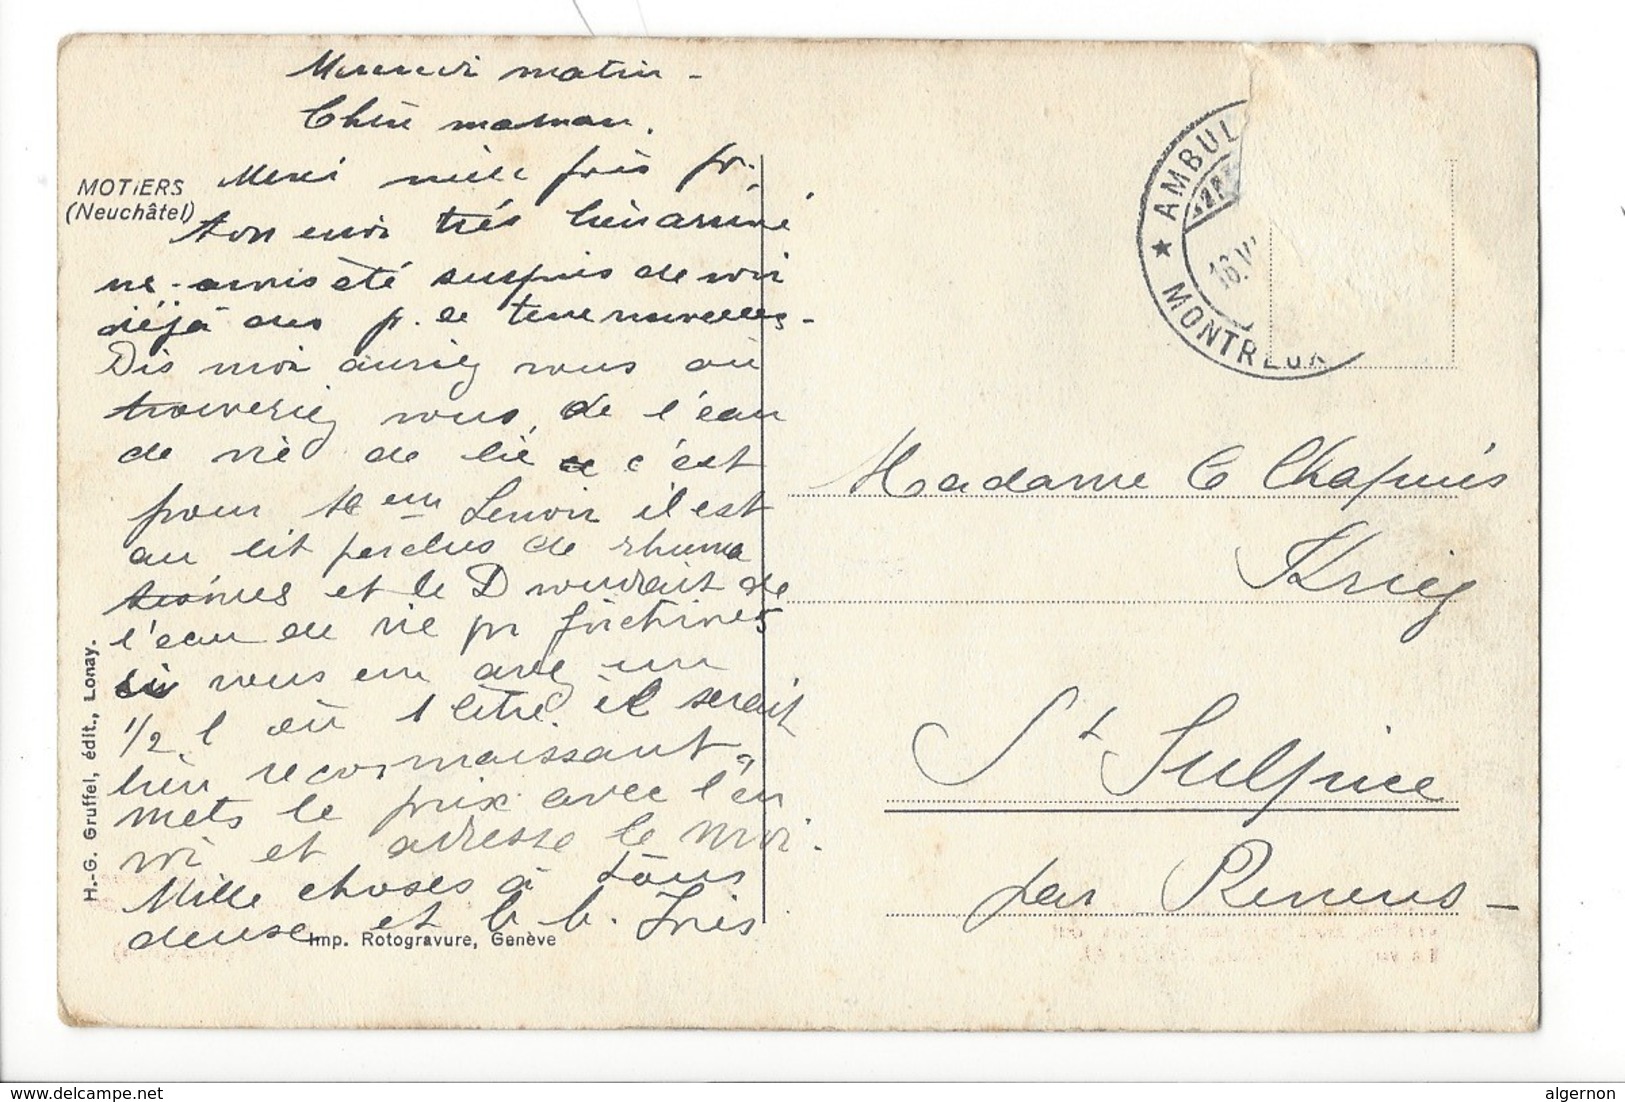 Mercredi matin -
Chère maman.
Merci mille fois pr.
ton envoi très bien arrivé
ns. avons été surpris de voir
déjà des p. de terre nouvelles -
Dis moi auriez vous où
trouveriez vous, de l'eau
de vie de lie c'est
pour M em Lenoir il est
au lit perclus de rhuma
tismes et le D voudrait de
l'eau de vie pr frictions
si vous en avez un
1/2 l ou 1 litre il serait
bien reconnaissant,
mets le prix avec l'en
voi et adresse le moi.
Mille choses à tous
deuse et b. b. Iris
MOTIERS
(Neuchâtel)
H.-G. Gruffel, édit., Lonay.
Imp. Rotogravure, Genève
★ AMBUL
16.VI
MONTREUX
Madame C Chapuis
Krieg
St Sulpice
par Renens -
www.delcampe.net
algernon